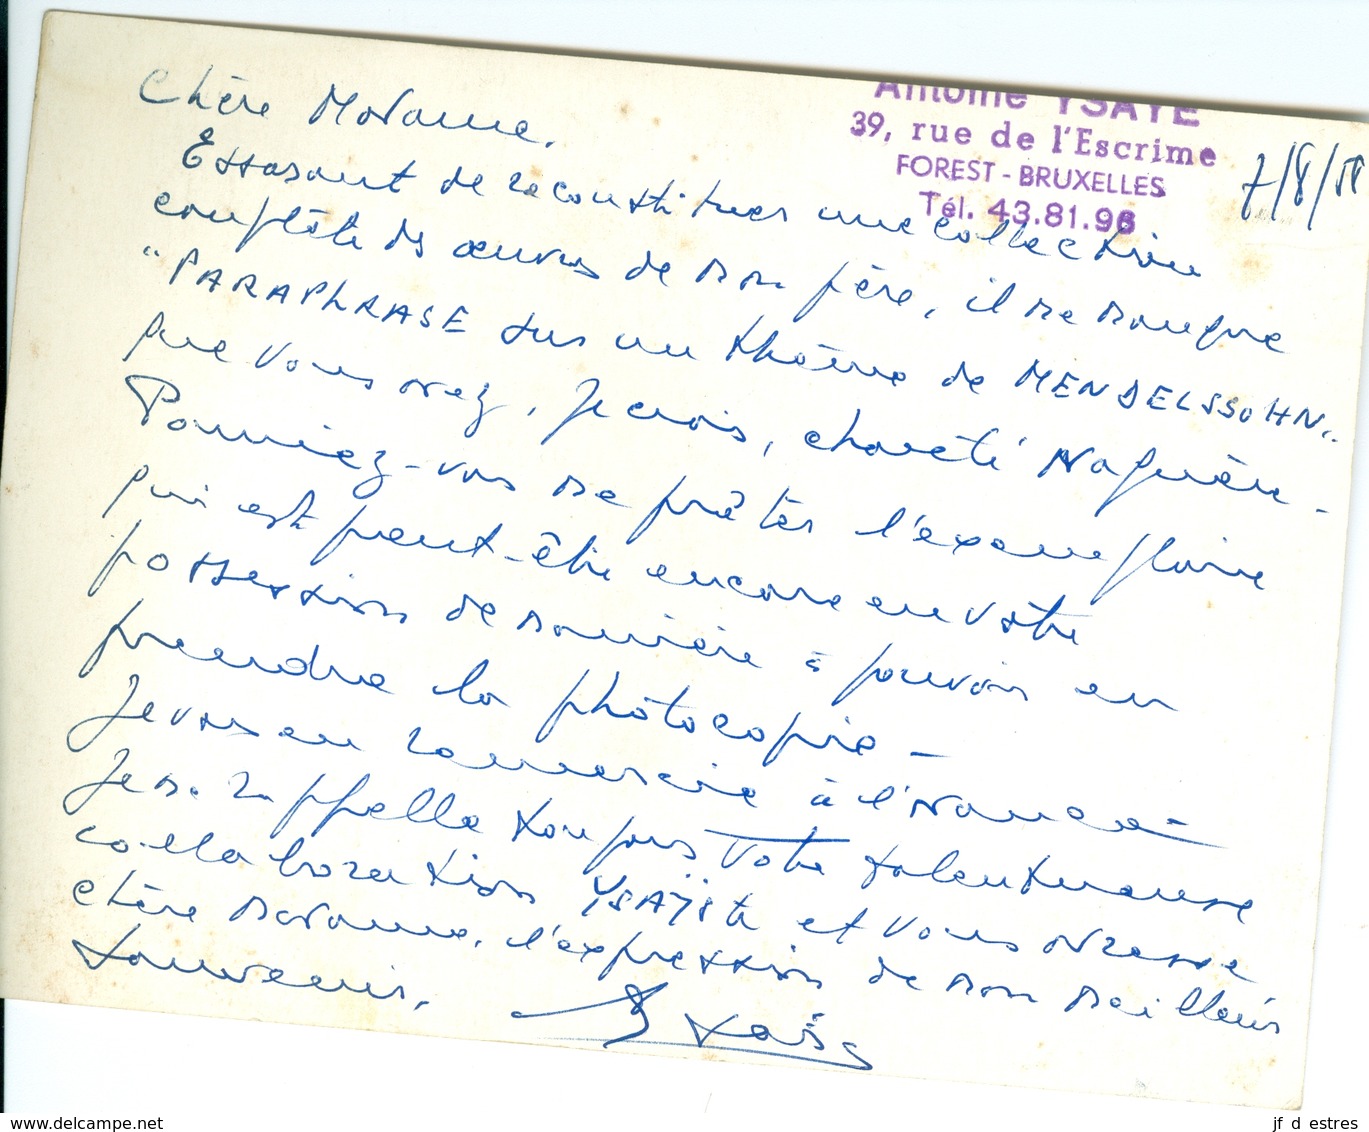 Antoine YSAYE
39, rue de l'Escrime
FOREST - BRUXELLES
Tél. 43.81.96
7/8/58
Chère Madame,
Essayant de reconstituer une collection
complète des œuvres de mon père, il me manque
"PARAPHRASE sur un thème de MENDELSSOHN"
que vous avez, je crois, chanté naguère -
Pourriez-vous me prêter l'exemplaire
qui est peut-être encore en votre
possession de manière à pouvoir en
prendre la photocopie -
Je vous en remercie à l'avance -
Je me rappelle toujours votre talentueuse
collaboration YSAŸSte et vous adresse
chère Madame, l'expression de mon meilleur
souvenir.
A Ysaÿe
www.delcampe.net
jf d estres